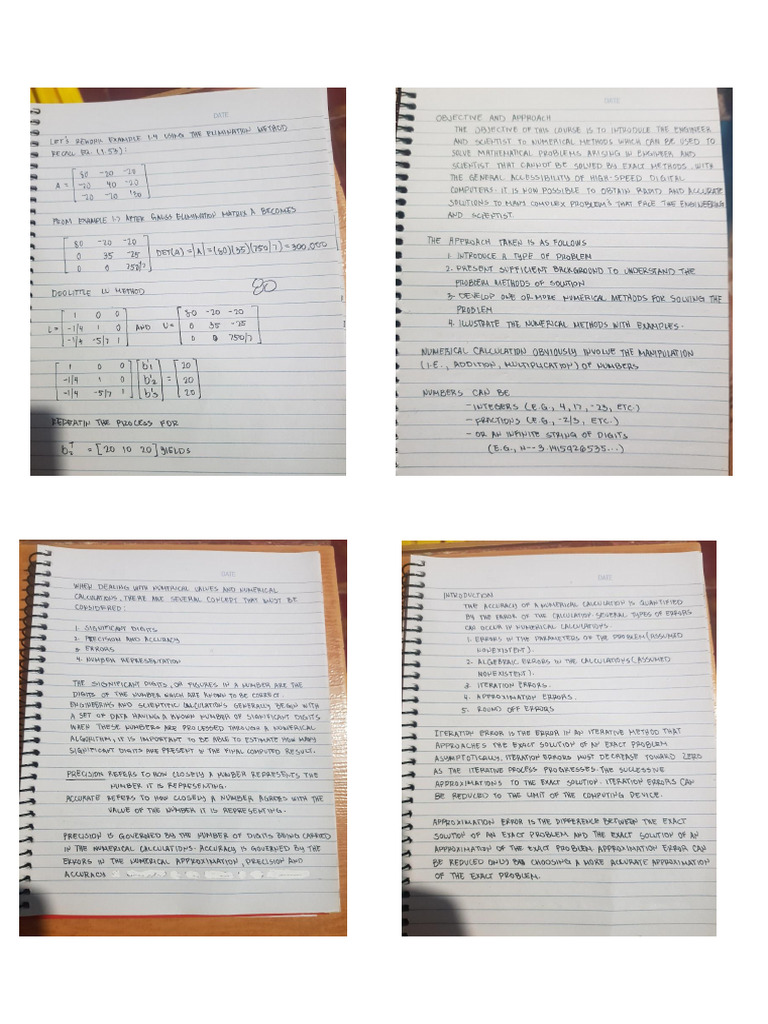 DATE
LET'S REWORK EXAMPLE 1.4 USING THE ELIMINATION METHOD
RECALL EQ. (1.53):
A = [ 80 -20 -20
-20 40 -20
-20 -20 130 ]
FROM EXAMPLE 1.7 AFTER GAUSS ELIMINATION MATRIX A BECOMES
[ 80 -20 -20
0 35 -25
0 0 750/7 ] DET(A) = |A| = (80)(35)(750/7) = 300,000
DOOLITTLE LU METHOD
80
L = [ 1 0 0
-1/4 1 0
-1/4 -5/7 1 ] AND U = [ 80 -20 -20
0 35 -25
0 0 750/7 ]
[ 1 0 0
-1/4 1 0
-1/4 -5/7 1 ] [ b'1
b'2
b'3 ] = [ 20
20
20 ]
THE PROCESS FOR
b2^T = [20 10 20] YIELDS
DATE
OBJECTIVE AND APPROACH
THE OBJECTIVE OF THIS COURSE IS TO INTRODUCE THE ENGINEER
AND SCIENTIST TO NUMERICAL METHODS WHICH CAN BE USED TO
SOLVE MATHEMATICAL PROBLEMS ARISING IN ENGINEER AND
SCIENTIST THAT CANNOT BE SOLVED BY EXACT METHODS. WITH
THE GENERAL ACCESSIBILITY OF HIGH-SPEED DIGITAL
COMPUTERS. IT IS NOW POSSIBLE TO OBTAIN RAPID AND ACCURATE
SOLUTIONS TO MANY COMPLEX PROBLEMS THAT FACE THE ENGINEERING
AND SCIENTIST.
THE APPROACH TAKEN IS AS FOLLOWS
1. INTRODUCE A TYPE OF PROBLEM
2. PRESENT SUFFICIENT BACKGROUND TO UNDERSTAND THE
PROBLEM METHODS OF SOLUTION
3. DEVELOP ONE OR MORE NUMERICAL METHODS FOR SOLVING THE
PROBLEM
4. ILLUSTRATE THE NUMERICAL METHODS WITH EXAMPLES.
NUMERICAL CALCULATION OBVIOUSLY INVOLVE THE MANIPULATION
(I.E., ADDITION, MULTIPLICATION) OF NUMBERS
NUMBERS CAN BE
- INTEGERS (E.G., 4, 17, -23, ETC.)
- FRACTIONS (E.G., -2/3, ETC.)
- OR AN INFINITE STRING OF DIGITS
(E.G., π--3.1415926535...)
DATE
WHEN DEALING WITH NUMERICAL VALUES AND NUMERICAL
CALCULATIONS, THERE ARE SEVERAL CONCEPT THAT MUST BE
CONSIDERED:
1. SIGNIFICANT DIGITS
2. PRECISION AND ACCURACY
3. ERRORS
4. NUMBER REPRESENTATION
THE SIGNIFICANT DIGITS, OR FIGURES IN A NUMBER ARE THE
DIGITS OF THE NUMBER WHICH ARE KNOWN TO BE CORRECT.
ENGINEERING AND SCIENTIFIC CALCULATIONS GENERALLY BEGIN WITH
A SET OF DATA HAVING A KNOWN NUMBER OF SIGNIFICANT DIGITS
WHEN THESE NUMBERS ARE PROCESSED THROUGH A NUMERICAL
ALGORITHM, IT IS IMPORTANT TO BE ABLE TO ESTIMATE HOW MANY
SIGNIFICANT DIGITS ARE PRESENT IN THE FINAL COMPUTED RESULT.
PRECISION REFERS TO HOW CLOSELY A NUMBER REPRESENTS THE
NUMBER IT IS REPRESENTING.
ACCURATE REFERS TO HOW CLOSELY A NUMBER AGREES WITH THE
VALUE OF THE NUMBER IT IS REPRESENTING.
PRECISION IS GOVERNED BY THE NUMBER OF DIGITS BEING CARRIED
IN THE NUMERICAL CALCULATIONS. ACCURACY IS GOVERNED BY THE
ERRORS IN THE NUMERICAL APPROXIMATION, PRECISION AND
ACCURACY
DATE
INTRODUCTION
THE ACCURACY OF A NUMERICAL CALCULATION IS QUANTIFIED
BY THE ERROR OF THE CALCULATION. SEVERAL TYPES OF ERRORS
CAN OCCUR IN NUMERICAL CALCULATIONS.
1. ERRORS IN THE PARAMETERS OF THE PROBLEM (ASSUMED
NONEXISTENT).
2. ALGEBRAIC ERRORS IN THE CALCULATIONS (ASSUMED
NONEXISTENT).
3. ITERATION ERRORS.
4. APPROXIMATION ERRORS.
5. ROUND OFF ERRORS
ITERATION ERROR IS THE ERROR IN AN ITERATIVE METHOD THAT
APPROACHES THE EXACT SOLUTION OF AN EXACT PROBLEM
ASYMPTOTICALLY. ITERATION ERRORS MUST DECREASE TOWARD ZERO
AS THE ITERATIVE PROCESS PROGRESSES. THE SUCCESSIVE
APPROXIMATIONS TO THE EXACT SOLUTION. ITERATION ERRORS CAN
BE REDUCED TO THE LIMIT OF THE COMPUTING DEVICE.
APPROXIMATION ERROR IS THE DIFFERENCE BETWEEN THE EXACT
SOLUTION OF AN EXACT PROBLEM AND THE EXACT SOLUTION OF AN
APPROXIMATION OF THE EXACT PROBLEM APPROXIMATION ERROR CAN
BE REDUCED ONLY BY CHOOSING A MORE ACCURATE APPROXIMATION
OF THE EXACT PROBLEM.